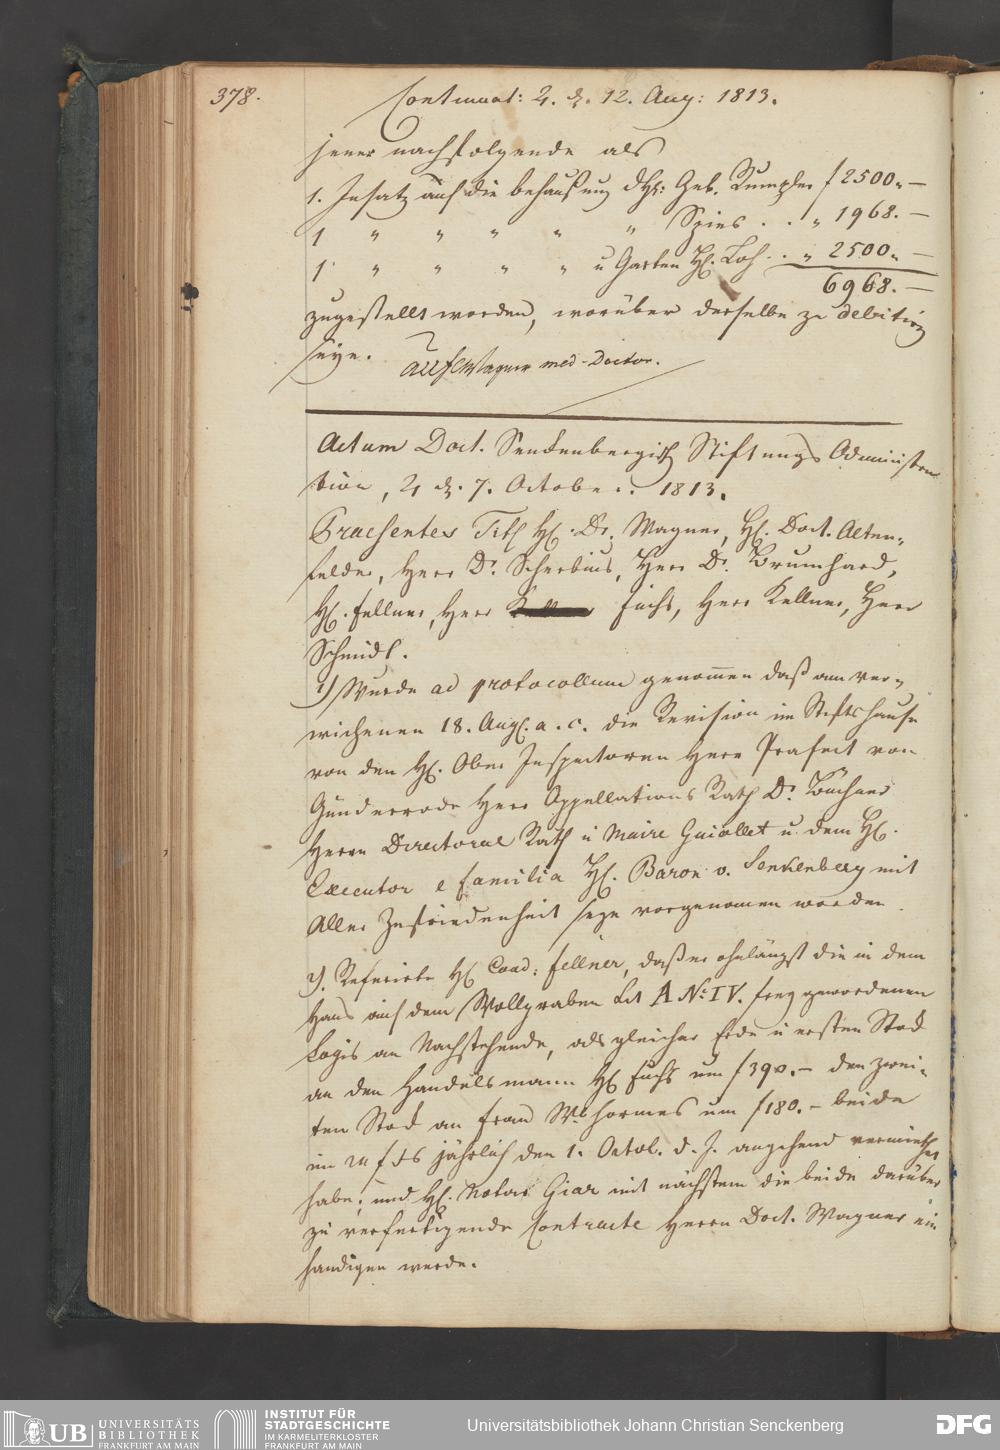 378.
Continuat: 4. d. 12. Aug: 1813.
jener nachfolgende als
1. Insatz auf die behaußung dHr: Geb. Rumpler f 2500.–
1 " " " " " Spies . . " 1968.–
1. " " " " u Garten H. Loh . . " 2500.–
6968.–
zugestellt worden, worüber derselbe zu debitiren
seye. Wagner med-Doctor.
Actum Doct. Senckenbergisch Stiftungs Administra
tion, d. 7. October. 1813.
Praesentes Titl H. Dr. Wagner, H. Doct. Alten-
felder, Herr Dr. Scherbius, Herr Dr. Brumhard,
H. Fellner, Herr Fuchs, Herr Kellner, Herr
Schmidt.
1) Wurde ad protocollum genommen daß am ver-
wichenen 18. Aug. a. c. die Revision im Stiftshause
von den H. Ober Inspectoren Herr Präfect von
Günderrode Herr Appellations Rath Dr. Büchner
Herrn Directorial Rath u Maire Guiollet u. dem H.
Executor e familia H. Baron v. Senkenberg mit
Aller Zufriedenheit seye vorgenommen worden.
2). Referirte H Coad: Fellner, daß er ohnlängst die in dem
Haus auf dem Wollgraben Lit A No IV. frey gewordenen
Logis an Nachstehende, als gleicher Erde u ersten Stock
an den Handelsmann H Fuchs um f 390.– den zwei-
ten Stock an Frau um f 180.– beide
im jährlich den 1. Octob. d. J. angehend vermiethet
habe; und H. Notar Giar mit nächstem die beide darüber
zu verfertigende Contracte Herrn Doct. Wagner ein
händigen werde.
UB UNIVERSITÄTS
BIBLIOTHEK
FRANKFURT AM MAIN
INSTITUT FÜR
STADTGESCHICHTE
IM KARMELITERKLOSTER
FRANKFURT AM MAIN
Universitätsbibliothek Johann Christian Senckenberg
DFG